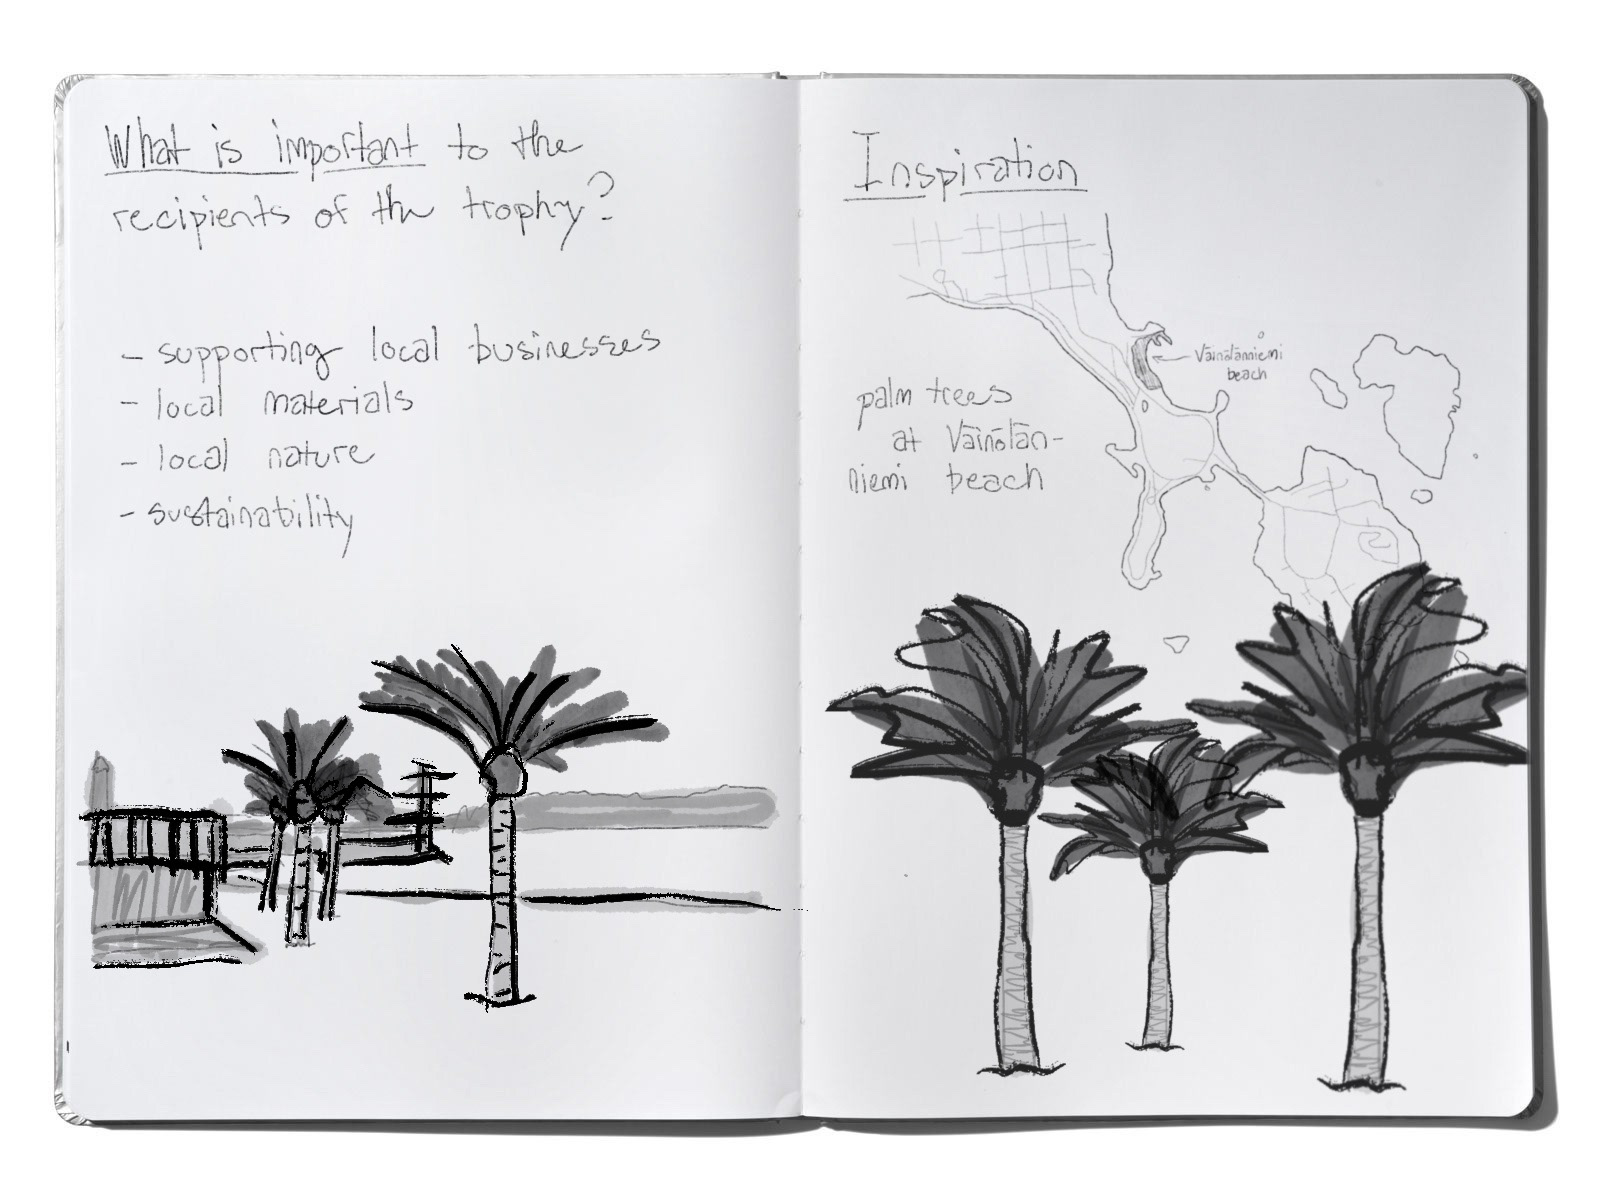 What is important to the
recipients of the trophy?
- supporting local businesses
- local materials
- local nature
- sustainability
Inspiration
Väinölänniemi
beach
palm trees
at Väinölän-
niemi beach